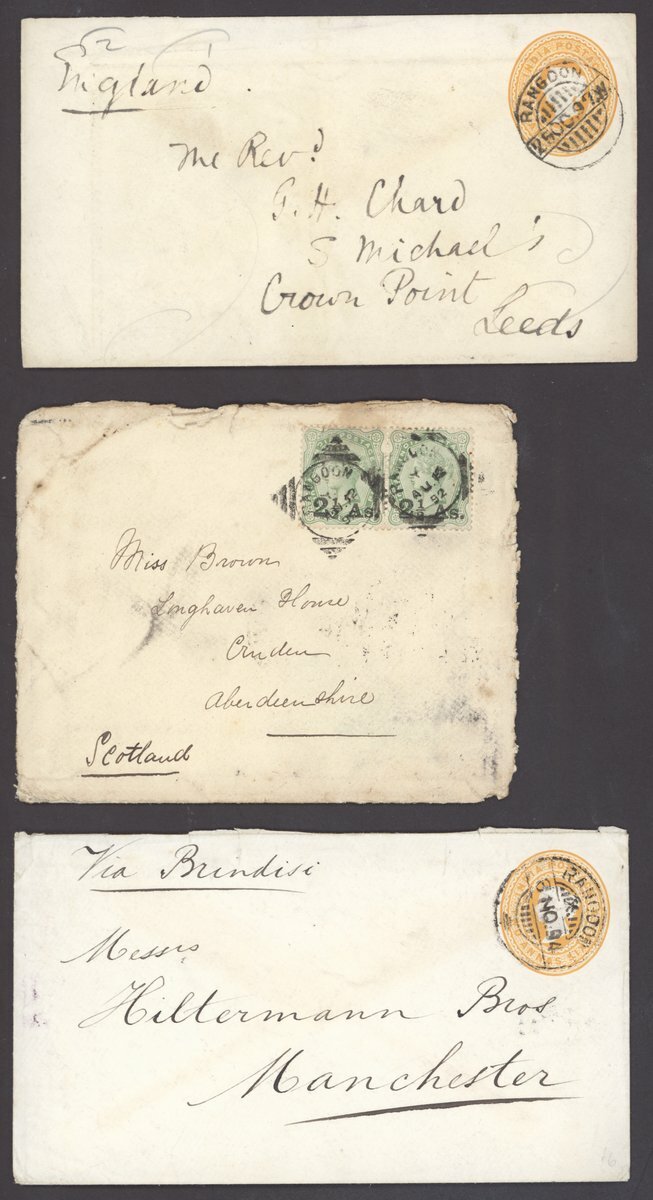 England.
INDIA POSTAGE
RANGOON
The Revd
G. H. Chard
S Michael's
Crown Point
Leeds
RANGOON
RANGOON
2½ As.
2½ As.
Miss Brown
Longhaven House
Cruden
Aberdeenshire
Scotland
Via Brindisi
RANGOON
NO. 94
Messrs
Hiltermann Bros
Manchester
16